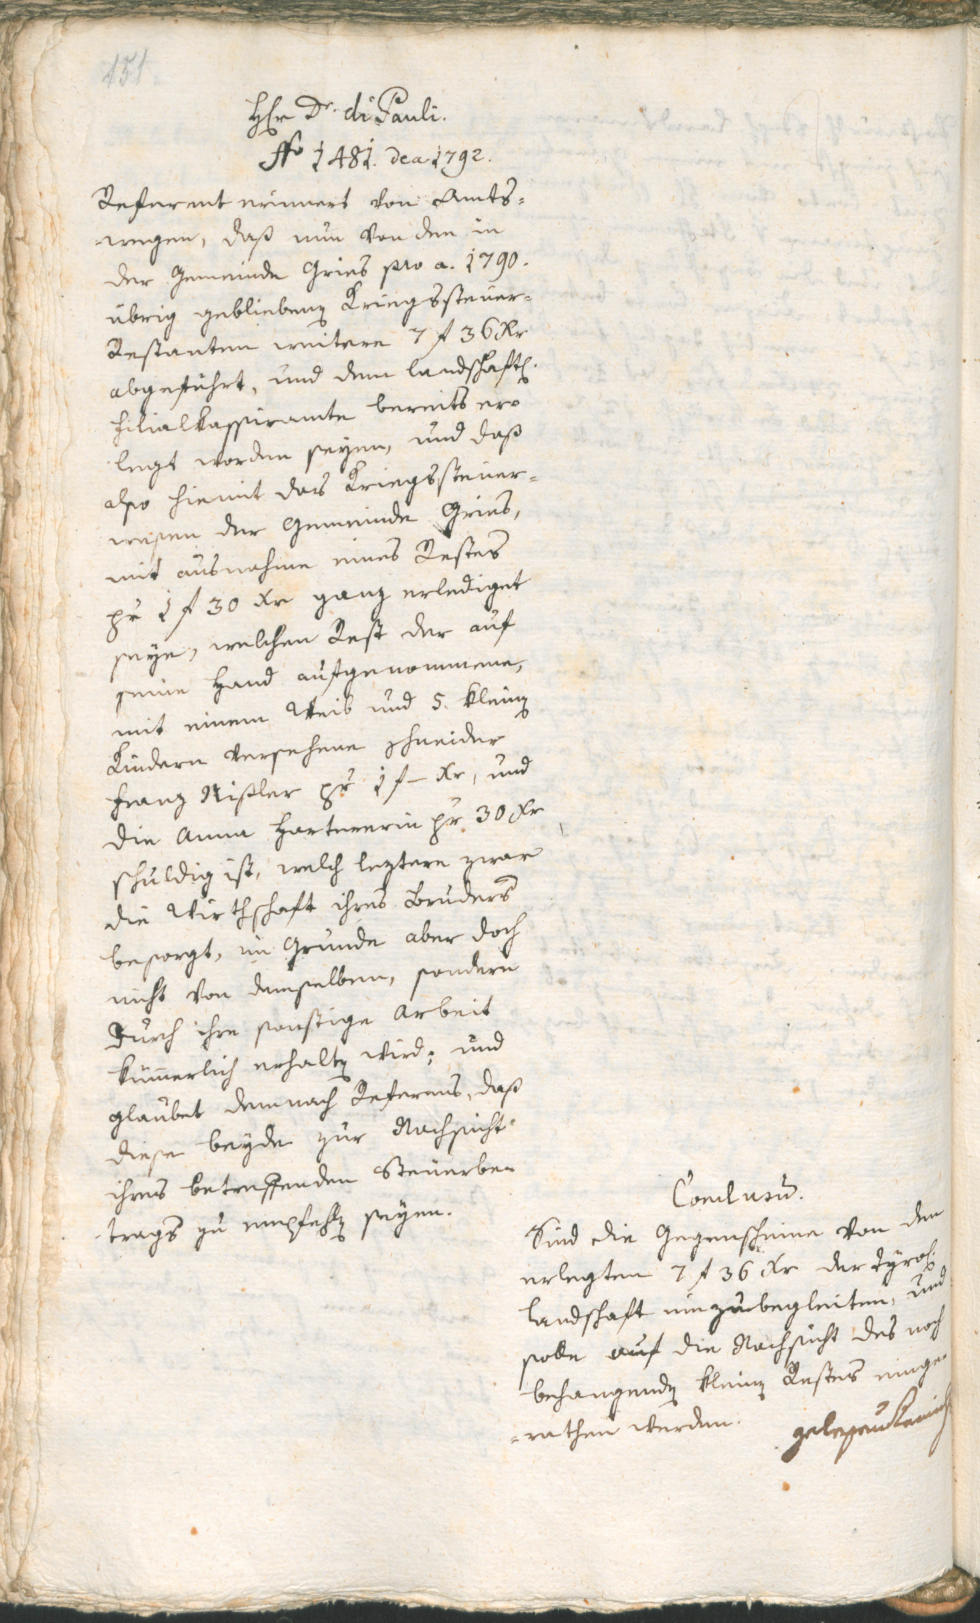 151
Hr Dr. di Pauli.
No 1481. de a. 1792.
Referent erinnert von Amts-
-wegen, daß nun von den in
der Gemeinde Gries pro a. 1790.
übrig geblieben Kriegssteuer-
Restanten weitere 7 f 36 Xr
abgeführt, und dem landschaftl.
Filialkassieramte bereits er-
legt worden seyen, und daß
also hiemit das Kriegssteuer-
wesen der Gemeinde Gries,
mit ausnahme eines Restes
pr 1 f 30 Xr ganz erlediget
seye, welchen Rest der auf
seine Hand aufgenommene,
mit einem Weib und 5. kleinen
Kindern versehene schneider
Franz Nißler pr 1 f – Xr, und
die Anna Hartnerin pr. 30 Xr
schuldig ist, welch leztere zwar
die Wirthschaft ihres Bruders
besorgt, im Grunde aber doch
nicht von demselben, sondern
durch ihre sonstige Arbeit
kümerlich erhalten wird; und
glaubet demnach Referens, daß
diese beyde zur Nachsicht
ihres betreffenden Steuerbe-
trags zu empfehlen seyen.
Conclusum.
Sind die Gegenscheine von den
erlegten 7 f 36 Xr der Tyrol.
landschaft einzubegleiten, und
solle auf die Nachsicht des noch
behangenden kleinen Restes einge-
-rathen werden.